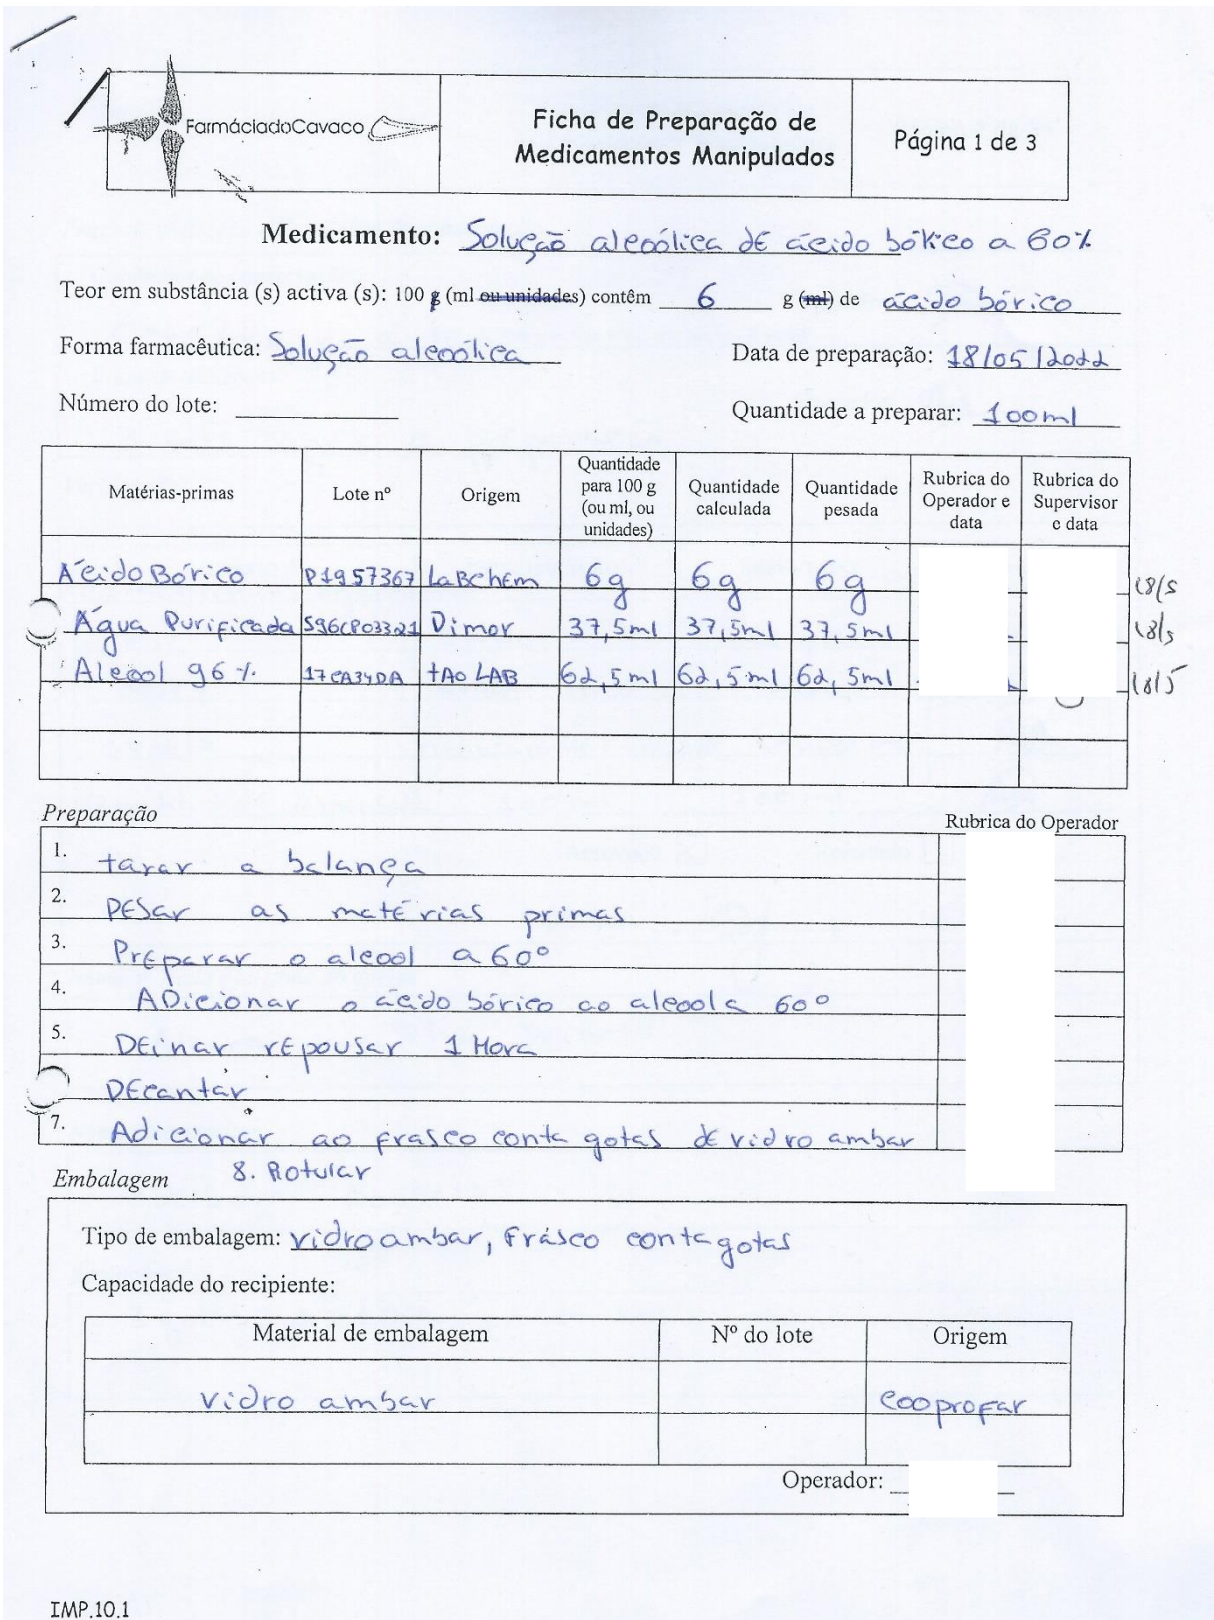 FarmáciadoCavaco
Ficha de Preparação de
Medicamentos Manipulados
Página 1 de 3
Medicamento: Solução alcoólica de ácido bórico a 60%
Teor em substância (s) activa (s): 100 g (ml ou unidades) contêm 6 g (ml) de ácido bórico
Forma farmacêutica: Solução alcoólica
Data de preparação: 18/05/2022
Número do lote:
Quantidade a preparar: 100ml
Matérias-primas Lote nº Origem Quantidade para 100 g (ou ml, ou unidades) Quantidade calculada Quantidade pesada Rubrica do Operador e data Rubrica do Supervisor e data
Ácido Bórico P1957367 LaBchEm 6g 6g 6g 18/5
Água Purificada S96CP03321 Dimor 37,5ml 37,5ml 37,5ml 18/5
Alcool 96% 17CA34DA tAo LAB 62,5ml 62,5ml 62,5ml 18/5
Preparação
Rubrica do Operador
1. tarar a balança
2. PESar as matérias primas
3. Preparar o alcool a 60º
4. ADicionar o ácido bórico ao alcool a 60º
5. DEixar rEpousar 1 Hora
DEcantar
7. Adicionar ao frasco conta gotas dE vidro ambar
8. Rotular
Embalagem
Tipo de embalagem: vidro ambar, frásco conta gotas
Capacidade do recipiente:
Material de embalagem Nº do lote Origem
vidro ambar cooprofar
Operador:
IMP.10.1